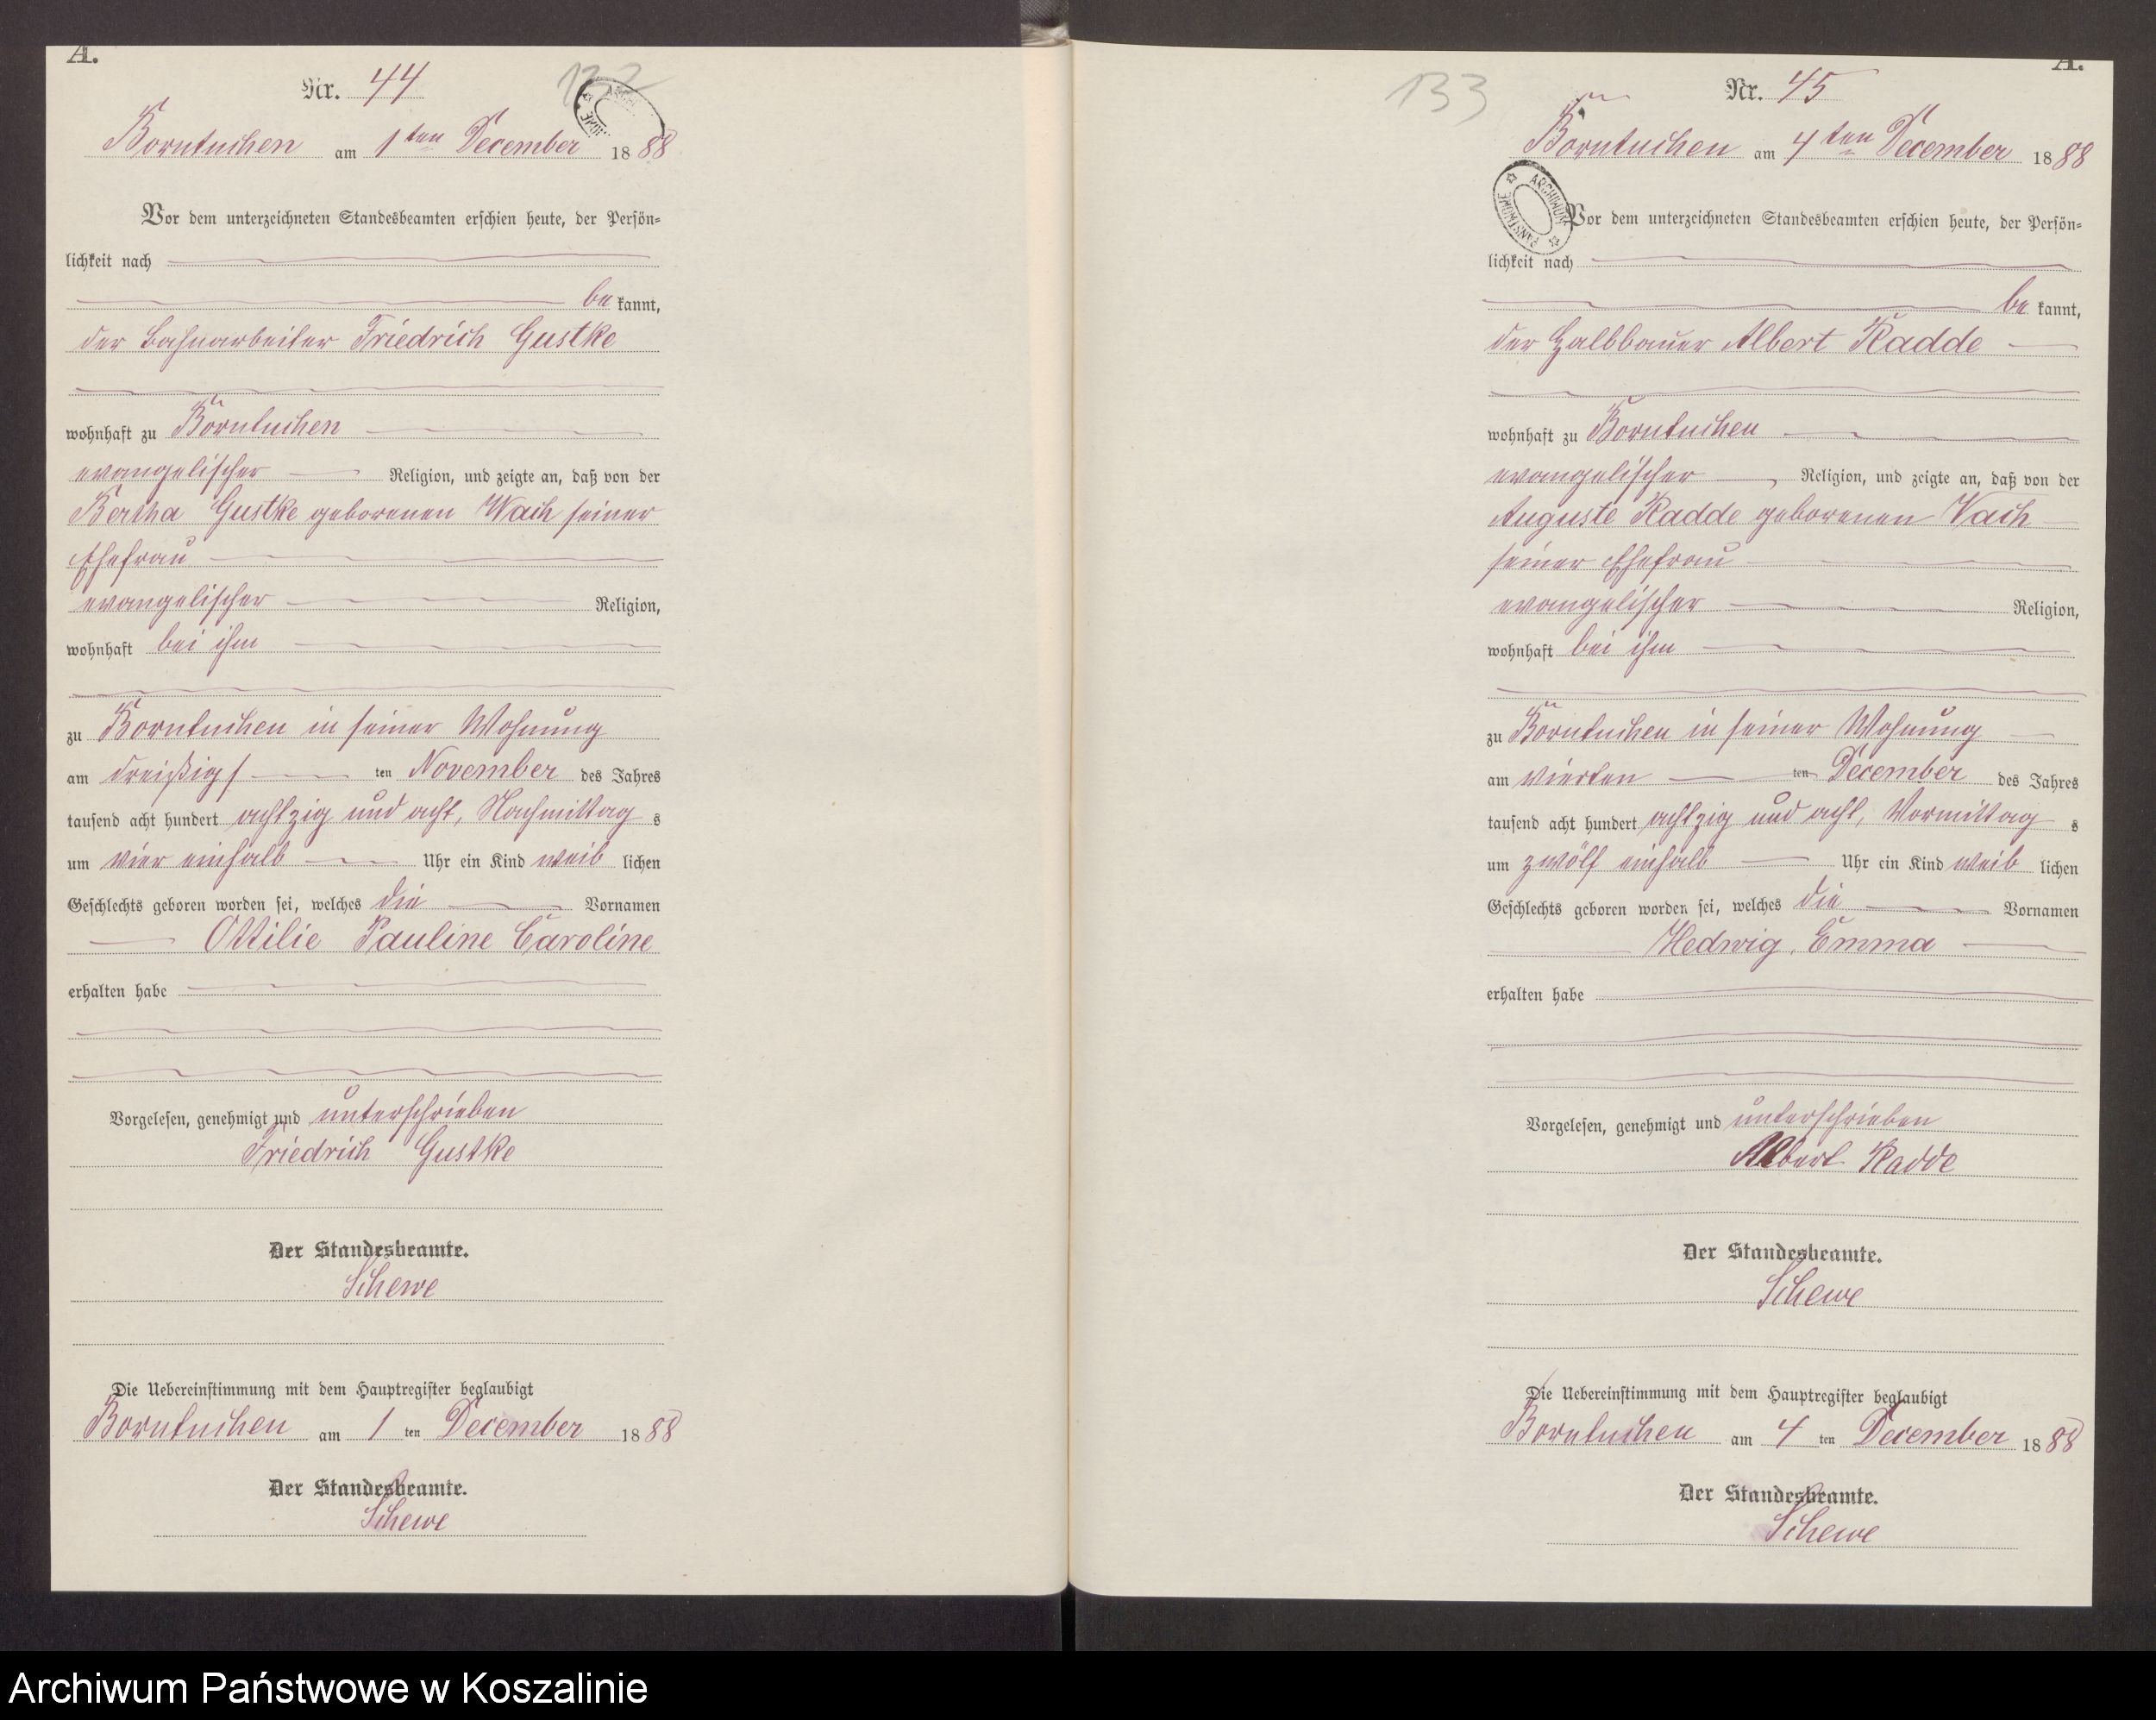 A.
Nr. 44
122
Borntuchen am 1ten December 1888
Vor dem unterzeichneten Standesbeamten erschien heute, der Persön-
lichkeit nach
bekannt,
der Bahnarbeiter Friedrich Gustke
wohnhaft zu Borntuchen
evangelischer Religion, und zeigte an, daß von der
Bertha Gustke geborenen Wach seiner
Ehefrau
evangelischer Religion,
wohnhaft bei ihm
zu Borntuchen in seiner Wohnung
am dreißigs ten November des Jahres
tausend acht hundert achtzig und acht, Nachmittags
um vier einhalb Uhr ein Kind weiblichen
Geschlechts geboren worden sei, welches die Vornamen
Ottilie Pauline Caroline
erhalten habe
Vorgelesen, genehmigt und unterschrieben
Friedrich Gustke
Der Standesbeamte.
Schewe
Die Uebereinstimmung mit dem Hauptregister beglaubigt
Borntuchen am 1 ten December 1888
Der Standesbeamte.
Schewe
A.
133
Nr. 45
Borntuchen am 4ten December 1888
ARCHIWUM PAŃSTWOWE
Vor dem unterzeichneten Standesbeamten erschien heute, der Persön-
lichkeit nach
bekannt,
der Halbbauer Albert Radde
wohnhaft zu Borntuchen
evangelischer Religion, und zeigte an, daß von der
Auguste Radde geborenen Vach
seiner Ehefrau
evangelischer Religion,
wohnhaft bei ihm
zu Borntuchen in seiner Wohnung
am vierten ten December des Jahres
tausend acht hundert achtzig und acht, Vormittags
um zwölf einhalb Uhr ein Kind weiblichen
Geschlechts geboren worden sei, welches die Vornamen
Hedwig, Emma
erhalten habe
Vorgelesen, genehmigt und unterschrieben
Albert Radde
Der Standesbeamte.
Schewe
Die Uebereinstimmung mit dem Hauptregister beglaubigt
Borntuchen am 4 ten December 1888
Der Standesbeamte.
Schewe
Archiwum Państwowe w Koszalinie